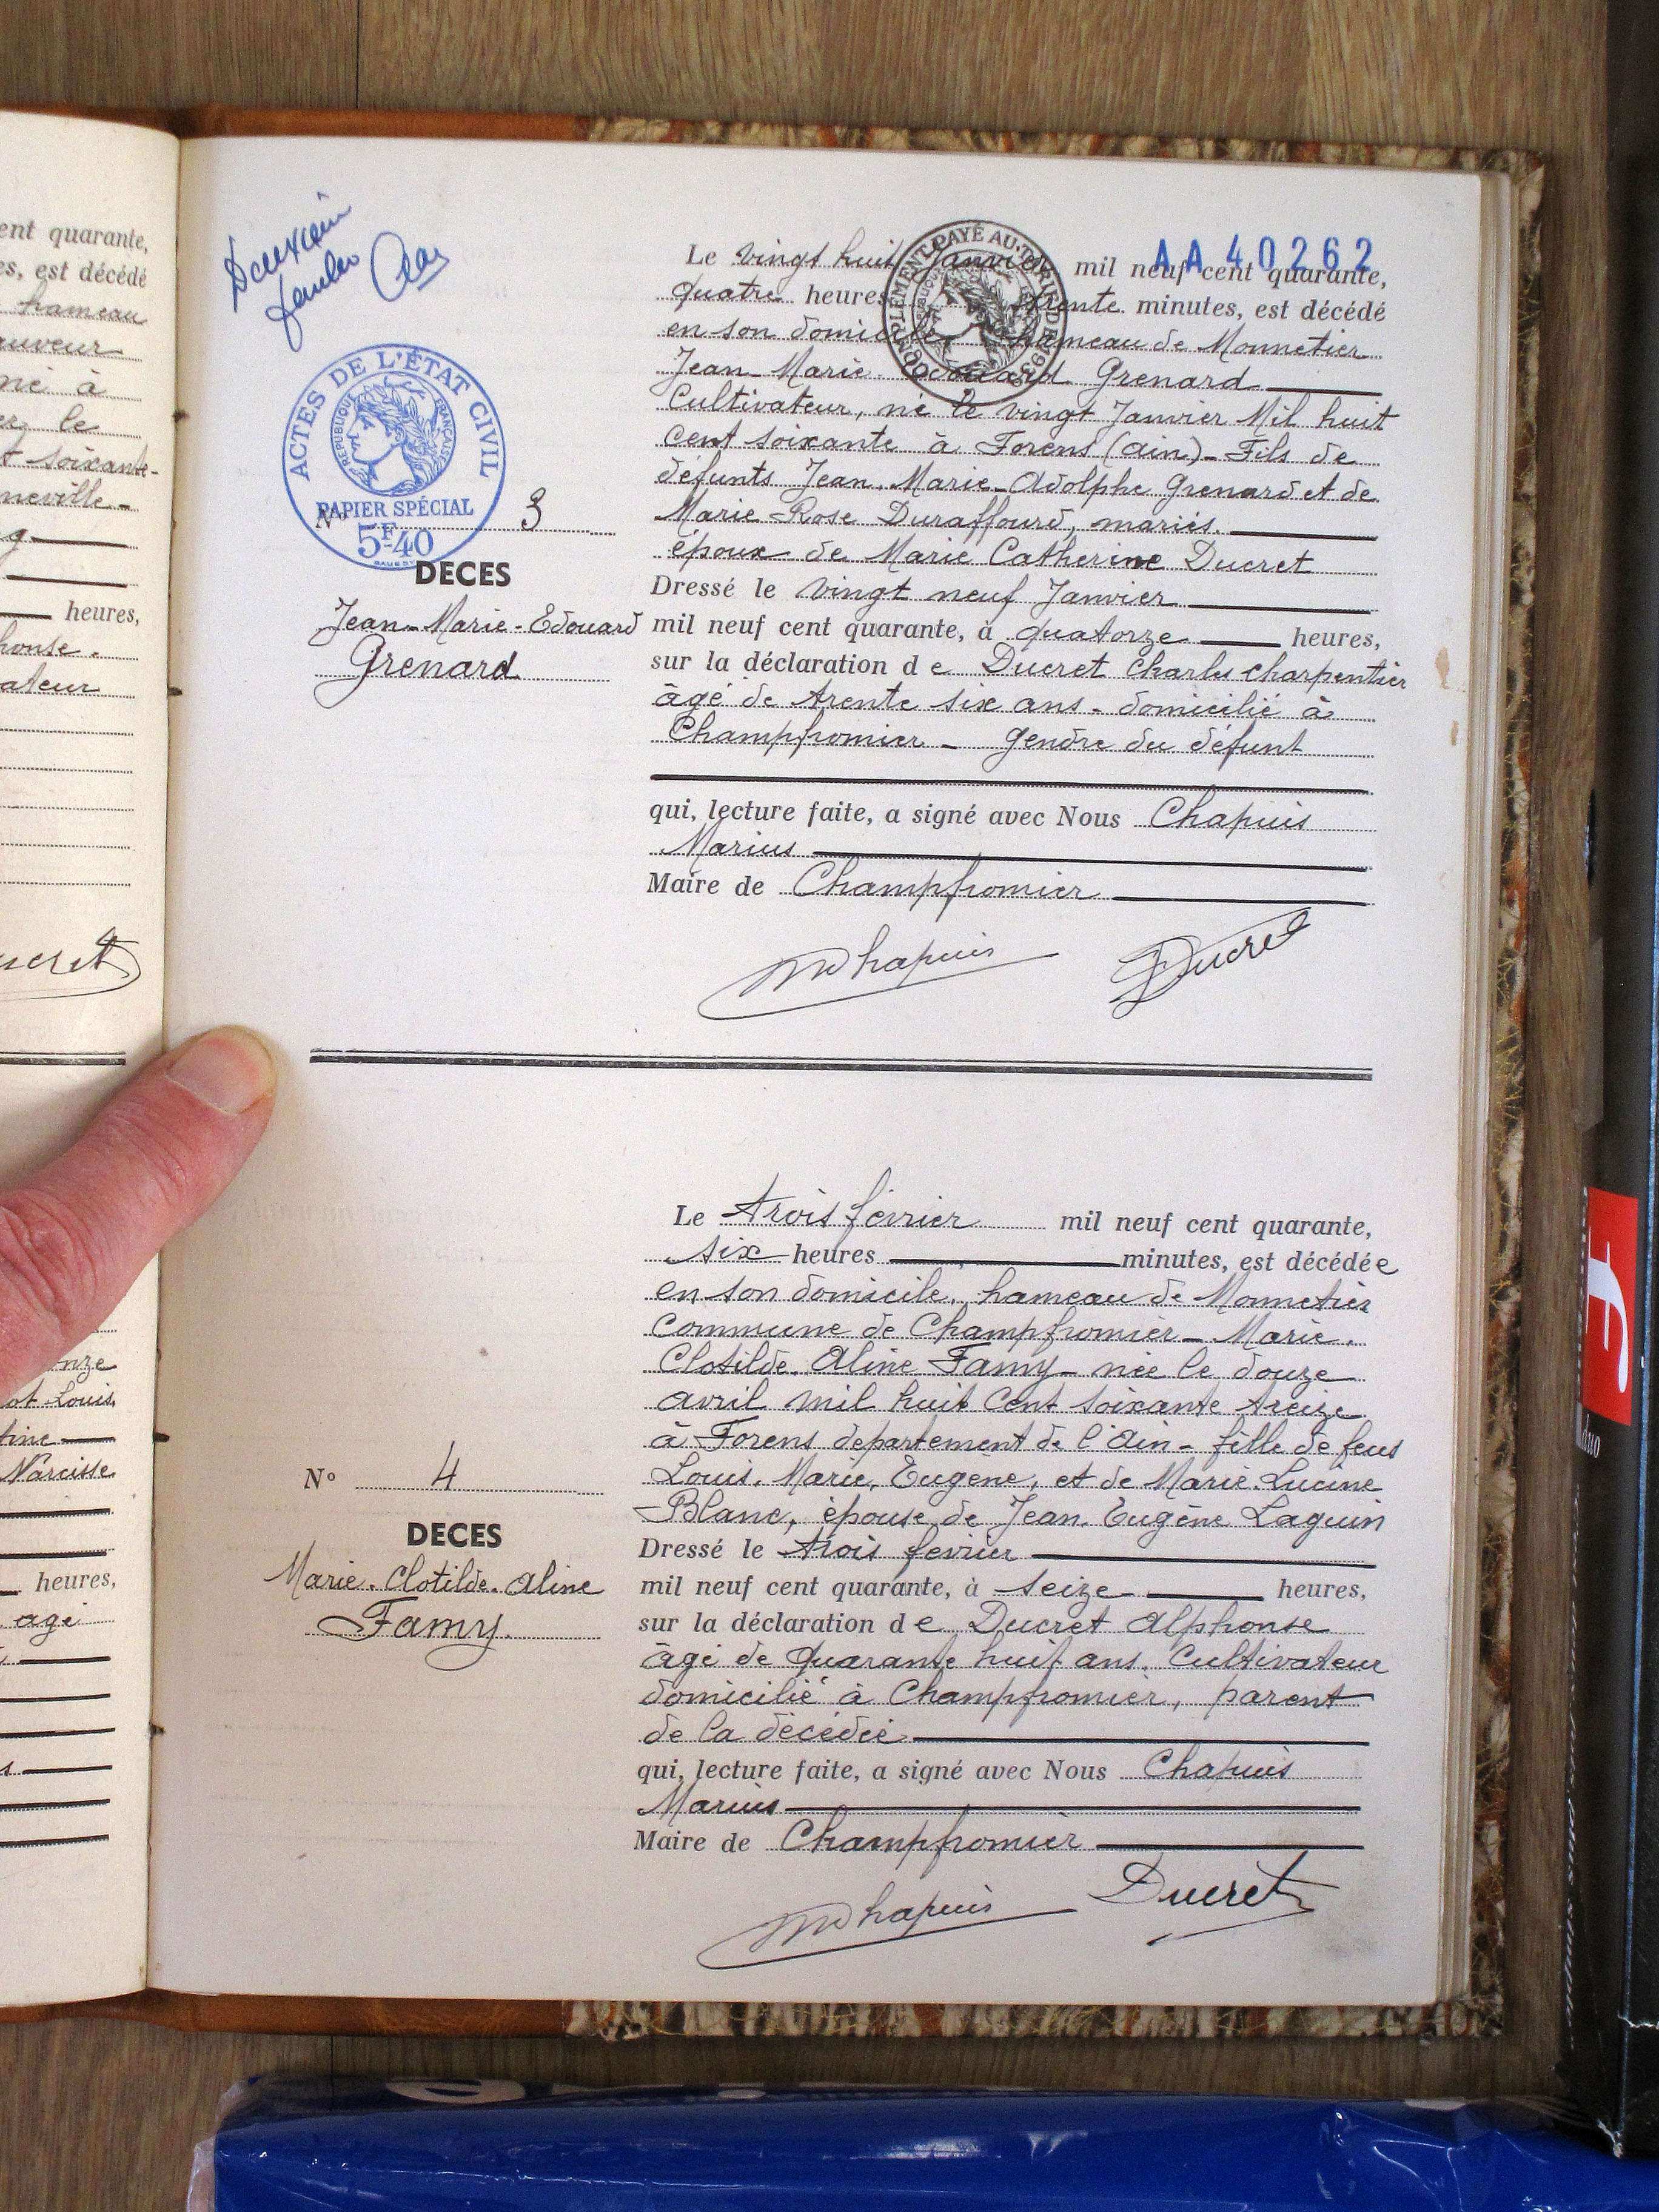 ent quarante,
es, est décédé
hameau
auveur
né à
er le
t soixante-
neville-
g
heures,
honse.
ateur
ucret
nze
ot Louis,
tine
Narcisse
heures,
agé
s
Deuxième
feuille
AA 40262
COMPLÉMENT PAYÉ AU TITRE
ACTES DE L'ÉTAT CIVIL
RÉPUBLIQUE FRANÇAISE
PAPIER SPÉCIAL
5F40
N° 3
DECES
Jean-Marie-Edouard
Grenard
Le Vingt huit Janvier mil neuf cent quarante,
quatre heures trente minutes, est décédé
en son domicile hameau de Monnetier
Jean-Marie Edouard Grenard
Cultivateur, né le vingt Janvier Mil huit
cent soixante à Forens (Ain)- Fils de
défunts Jean. Marie-Adolphe Grenard et de
Marie-Rose Duraffourd, mariés.
époux de Marie Catherine Ducret
Dressé le vingt neuf Janvier
mil neuf cent quarante, à quatorze heures,
sur la déclaration de Ducret Charles charpentier
âgé de trente six ans- domicilié à
Champfromier - gendre du défunt
qui, lecture faite, a signé avec Nous Chapuis
Marius
Maire de Champfromier
MChapuis Ducret
N° 4
DECES
Marie. Clotilde. Aline
Famy.
Le trois février mil neuf cent quarante,
six heures minutes, est décédée
en son domicile, hameau de Monnetier
Commune de Champfromier- Marie.
Clotilde. Aline Famy- née le douze
avril mil huit cent soixante treize
à Forens departement de l'Ain- fille de feus
Louis. Marie. Eugène, et de Marie. Lucine
Blanc, épouse de Jean. Eugène Laguin
Dressé le trois fevrier
mil neuf cent quarante, à seize heures,
sur la déclaration de Ducret Alphonse
âgé de Quarante huit ans. Cultivateur
domicilié à Champfromier, parent
de la décédée
qui, lecture faite, a signé avec Nous Chapuis
Marius
Maire de Champfromier
MChapuis Ducret